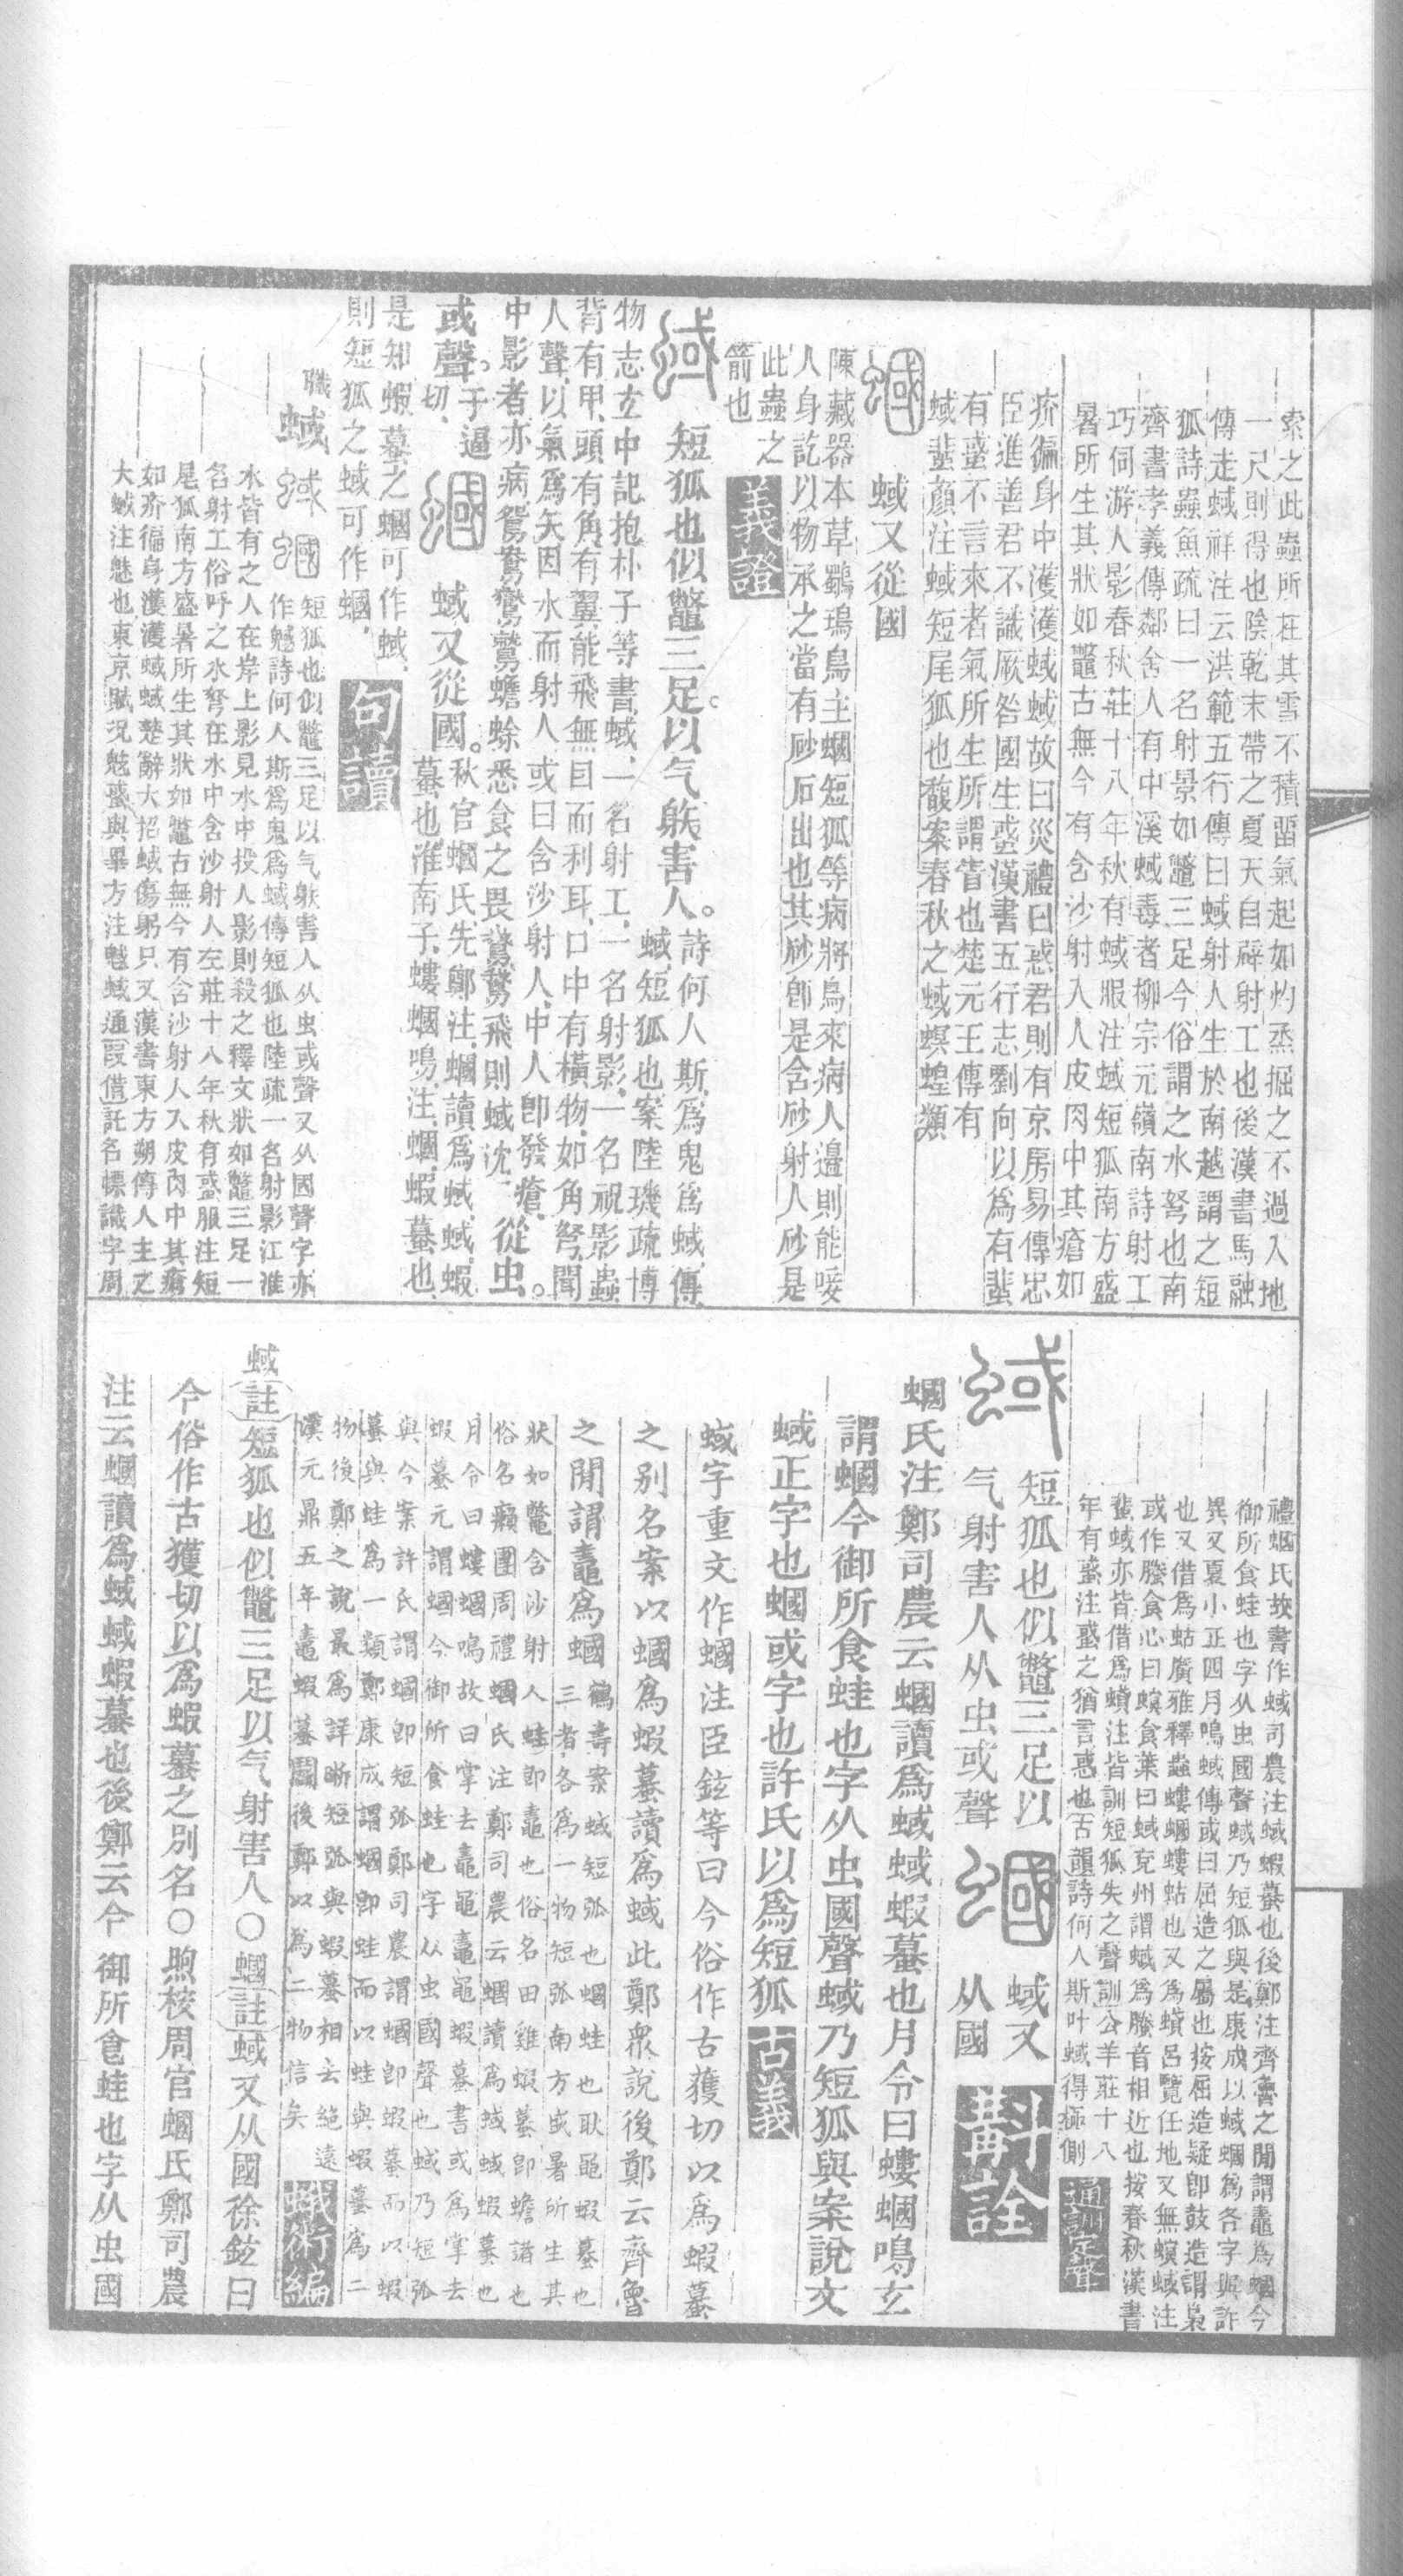 索之此蟲所在其雪不積畱氣起如灼烝掘之不過入地
一尺則得也陰乾末帶之夏天自辟射工也後漢書馬融
傳走蜮祥注云洪範五行傳曰蜮射人生於南越謂之短
狐詩蟲魚疏曰一名射景如鼈三足今俗謂之水弩也南
齊書孝義傳鄰舍人有中溪蜮毒者柳宗元嶺南詩射工
巧伺游人影春秋莊十八年秋有蜮服注蜮短狐南方盛
暑所生其狀如鼈古無今有含沙射入人皮肉中其瘡如
疥徧身中濩濩蜮蜮故曰災禮曰惑君則有京房易傳忠
臣進善君不識厥咎國生惑漢書五行志劉向以爲有蜚
有蜮不言來者氣所生所謂眚也楚元王傳有
蜮蜚顏注蜮短尾狐也馥案春秋之蜮螟蝗類
蟈 蜮又從國
陳藏器本草鸀瑦鳥主蟈短狐等病將鳥來病人邊則能唼
人身訖以物承之當有砂石出也其砂卽是含砂射人砂是
此蟲之
箭也
義證
蜮 短狐也似鼈三足。以气躲害人。詩何人斯爲鬼爲蜮傳
蜮短狐也案陸璣疏博
物志玄中記抱朴子等書蜮、一名射工、一名射影、一名視影蟲
背有甲、頭有角有翼能飛無目而利耳、口中有橫物、如角弩、聞
人聲、以氣爲矢因水而射人、或曰含沙射人、中人卽發瘡、從虫。
中影者亦病鴛鴦鸑鷟蟾蜍悉食之畏鴛鴦飛則蜮沈、
或聲。于逼切、 蟈 蜮又從國。秋官蟈氏先鄭注、蟈讀爲蜮、蜮、蝦
蟇也、淮南子、螻蟈鳴、注、蟈、蝦蟇也
是知蝦蟇之蟈可作蜮、
則短狐之蜮可作蟈、
句讀
職 蜮 短狐也似鼈三足以气躲害人从虫或聲又从國聲字亦
作魊詩何人斯爲鬼爲蜮傳短狐也陸疏一名射影江淮
水皆有之人在岸上影見水中投人影則殺之釋文狀如鼈三足一
名射工俗呼之水弩在水中含沙射人左莊十八年秋有蜮服注短
尾狐南方盛暑所生其狀如鼈古無今有含沙射人入皮肉中其瘡
如疥徧身濩濩蜮蜮楚辭大招蜮傷躬只又漢書東方朔傳人主之
大蜮注魅也東京賦況魊蜮與畢方注魊蜮通叚借託名幖識字周
禮蟈氏故書作蜮司農注蜮蝦蟇也後鄭注齊魯之閒謂鼃爲蟈今
御所食蛙也字从虫國聲蜮乃短狐與是康成以蜮蟈爲各字與許
異又夏小正四月鳴蜮傳或曰屈造之屬也按屈造疑卽鼓造謂梟
也又借爲蛄廣雅釋蟲螻蟈螻蛄也又爲蟘呂覽任地又無螟蜮注
或作螣食心曰螟食葉曰蜮兗州謂蜮爲螣音相近也按春秋漢書
蜚蜮亦皆借爲蟘注皆訓短狐失之聲訓公羊莊十八
年有蜮注蜮之猶言惑也古韻詩何人斯叶蜮得極側
通訓定聲
蜮 短狐也似鼈三足以
气射害人从虫或聲
蟈 蜮又
从國
斠詮
蟈氏注鄭司農云蟈讀爲蜮蜮蝦蟇也月令曰螻蟈鳴玄
謂蟈今御所食蛙也字从虫國聲蜮乃短狐與案說文
蜮正字也蟈或字也許氏以爲短狐
古義
蜮字重文作蟈注臣鉉等曰今俗作古獲切以爲蝦蟇
之別名案以蟈爲蝦蟇讀爲蜮此鄭衆說後鄭云齊魯
之閒謂鼃爲蟈鶴壽案蜮短弧也蟈蛙也耿黽蝦蟇也
三者各爲一物短弧南方盛暑所生其
狀如鼈含沙射人蛙卽鼃也俗名田雞蝦蟇卽蟾諸也
俗名癩團周禮蟈氏注鄭司農云蟈讀爲蜮蜮蝦蟇也
月令曰螻蟈鳴故曰掌去鼃黽鼃黽蝦蟇書或爲掌去
蝦蟇元謂蟈今御所食蛙也字从虫國聲也蜮乃短弧
與今案許氏謂蟈卽短弧鄭司農謂蟈卽蝦蟇而以蝦
蟇與蛙爲一類鄭康成謂蟈卽蛙而以蛙與蝦蟇爲二
物後鄭之說最爲詳晰短弧與蝦蟇相去絶遠
漢元鼎五年鼃蝦蟇鬭後鄭以爲二物信矣
蛾術編
蜮註短狐也似鼈三足以气射害人○蟈註蜮又从國徐鉉曰
今俗作古獲切以爲蝦蟇之別名○煦核周官蟈氏鄭司農
注云蟈讀爲蜮蜮蝦蟇也後鄭云今御所食蛙也字从虫國